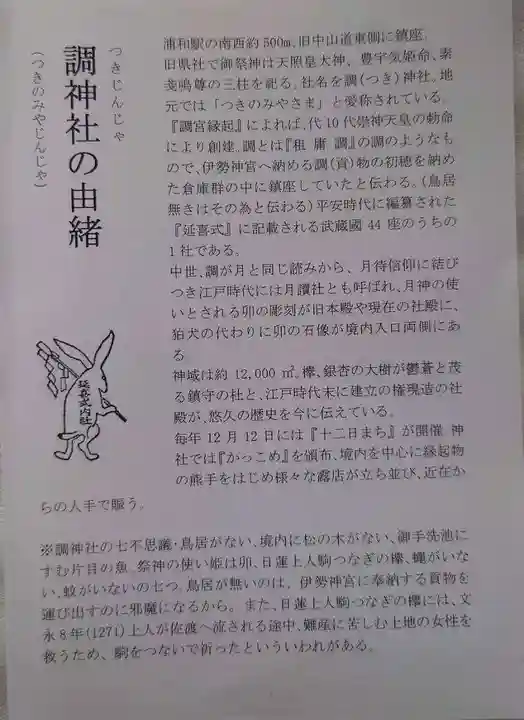 つきじんじゃ
調神社の由緒
（つきのみやじんじゃ）
浦和駅の南西約500m、旧中山道東側に鎮座。
旧県社で御祭神は天照皇大神、豊宇気姫命、素
戔嗚尊の三柱を祀る。社名を調(つき)神社。地
元では「つきのみやさま」と愛称されている。
『調宮縁起』によれば、代10代崇神天皇の勅命
により創建。調とは『租 庸 調』の調のようなも
ので、伊勢神宮へ納める調(貢)物の初穂を納め
た倉庫群の中に鎮座していたと伝わる。(鳥居
無きはその為と伝わる)平安時代に編纂された
『延喜式』に記載される武蔵國44座のうちの
1社である。
中世、調が月と同じ読みから、月待信仰に結び
つき江戸時代には月讀社とも呼ばれ、月神の使
いとされる卯の彫刻が旧本殿や現在の社殿に、
狛犬の代わりに卯の石像が境内入口両側にあ
る
神域は約12,000㎡。欅、銀杏の大樹が鬱蒼と茂
る鎮守の杜と、江戸時代末に建立の権現造の社
殿が、悠久の歴史を今に伝えている。
毎年12月12日には『十二日まち』が開催 神
社では『がっこめ』を頒布、境内を中心に縁起物
の熊手をはじめ様々な露店が立ち並び、近在か
らの人手で賑う。
延喜式内社
※調神社の七不思議・鳥居がない、境内に松の木がない、御手洗池に
すむ片目の魚、祭神の使い姫は卯、日蓮上人駒つなぎの欅、蠅がいな
い、蚊がいないの七つ。鳥居が無いのは、伊勢神宮に奉納する貢物を
運び出すのに邪魔になるから。また、日蓮上人駒つなぎの欅には、文
永8年(1271)上人が佐渡へ流される途中、難産に苦しむ土地の女性を
救うため、駒をつないで祈ったといういわれがある。